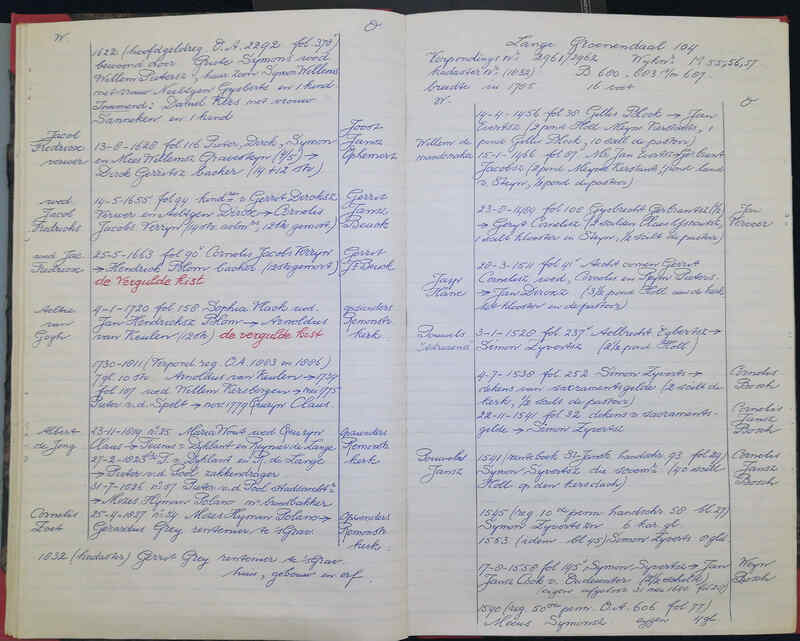 W. O
1622 (hoofdgeldreg. O.A. 2292 fol 378)
bewoond door Grietie Symons wed.
Willem Pieters, haar zoon Symon Willems
met vrouw Neeltgen Gysberts en 1 kind
Inwonend: Daniel Kles met vrouw
Janneken en 1 kind
Jacob
Fredricx
verwer
13-8-1628 fol 116 Pieter, Dirck, Symon
en Mees Willemsz Gravesteyn (4/5) →
Dirck Gerritsz backer (14+12 str)
Joost
Jansz
Ophemert
wed.
Jacob
Fredricks
14-5-1655 fol 94 kind v Gerrit Dircksz
Verwer en Aeltgen Dircx → Cornelis
Jacobs Verryn (12 str gemort)
Gerrit
Jansz
Beuck
wed. Jac.
Fredricx
25-5-1663 fol 90 Cornelis Jacobs Verryn
→ Hendrick Blom backer (12 str gemort)
de Vergulde Kist
Gerrit
Js Buck
Aeltie
van
Gogh
4-1-1720 fol 158 Sophia Mack wed.
Jan Hendricksz Blom → Arnoldus
van Keulen (12 str) de vergulde kist
opzienders
Remonstr.
kerk
1730-1811 (Verpond. reg. O.A. 1883 en 1886)
7 gl. 10 str. Arnoldus van Keulen → 1737
fol 107 wed Willem Kersbergen → mei 1775
Pieter v.d. Spelt → nov. 1779 Quiryn Claus
Albert
de Jong
23-11-1814 no 25 Maria Wout wed Quiryn
Claus → Teunis v Dyklant en Rymer de Lange
27-2-1823 T. v Dyklant en R. de Lange
→ Pieter v.d. Pool zakkendrager
31-7-1826 no 57 Pieter v.d. Pool
→ Mozes Hyman Polano mr. broodbakker
Opzienders
Remonstr
kerk
Cornelis
Zoet
25-4-1827 no 34 Mozes Hyman Polano →
Gerardus Grey rentenier te 's Grav.
opzienders
Remonstr
kerk
1832 (kadaster) Gerrit Grey rentenier te 's Grav.
huis, gebouw en erf.
Lange Groenendaal 104
Verpondings no 2961/2962 Wykno. M 55,56,57
kadaster no (1832) B 600, 603 t/m 607
breedte in 1705 16 voet
W. O
14-4-1456 fol 38 Gilles Block → Jan
Evertsz (2 pond Holl. Meyne Kerstants, 1
pond Gilles Block, 10 scell de pastoor)
Willem de
mandemaker
15-1-1466 fol 87 Mr. Jan Evertsz → Gerbrant
Jacobsz (2 pond Meyne Kerstants, 1 pond land
v. Steyn, 1/2 pond de pastoor)
23-8-1484 fol 100 Gysbrecht Gerbrantsz
→ Geryt Cornelisz (2 scilden Claes Ghysuut,
1 scilt klooster in Steyn, 1/2 scilt de pastoor)
Jan
Vervoer
Jayn
Hane
28-3-1511 fol 41 Aecht comen Gerrit
Cornelisz wed, Cornelis en Seyn Pieters
→ Jan Dircxz (3 1/2 pond Holl. aan de kerk
het klooster en de pastoor)
Pouwels
3-1-1528 fol 237 Aelbrecht Egbertsz →
Simon Zyvertsz (2 1/2 pond Holl)
4-7-1538 fol 252 Simon Zyverts →
deken van sacramentsgilde (2 scilt de
kerk, 1/2 scilt de pastoor)
Cornelis
Bosch
22-11-1541 fol 32 dekens v sacraments-
gilde → Simon Zyvertsz
Cornelis
Jansz
Bosch
Pouwels
Jansz
1541 (renteboek St. Jansk. handschr. 93 fol 24)
Symon Syvertsz (40 scell
Holl. op den kersdach)
Cornelis
Jansz
Bosch
1545 (reg. 10de penn. handschr. 58 bl. 27)
Symon Zyvertszn 6 kar. gl.
1553 (idem bl 45) Simon Zyverts 9 gld.
17-8-1558 fol 145 Symon Syvertsz → Jan
Jansz Cock v. Oudewater
(eigen afgelost 31 nov 1620 fol 27)
Weyn
Bosch
1590 (reg. 50ste penn. O.A. 606 fol 77)
Mees Symonsz eygen 4 gl.